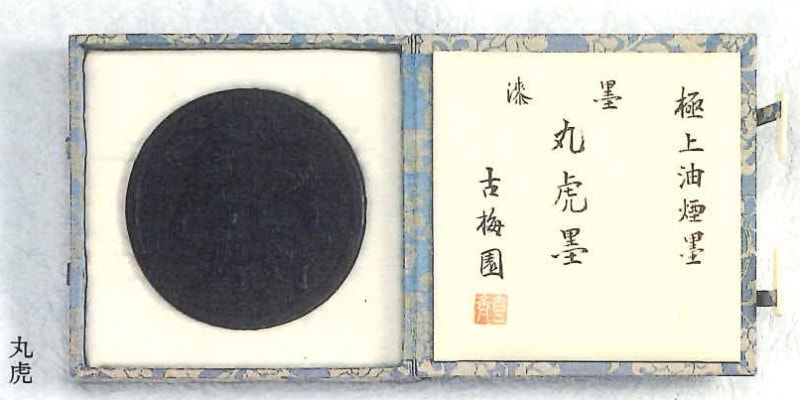 極上油煙墨
墨漆
丸虎墨
古梅園
丸虎